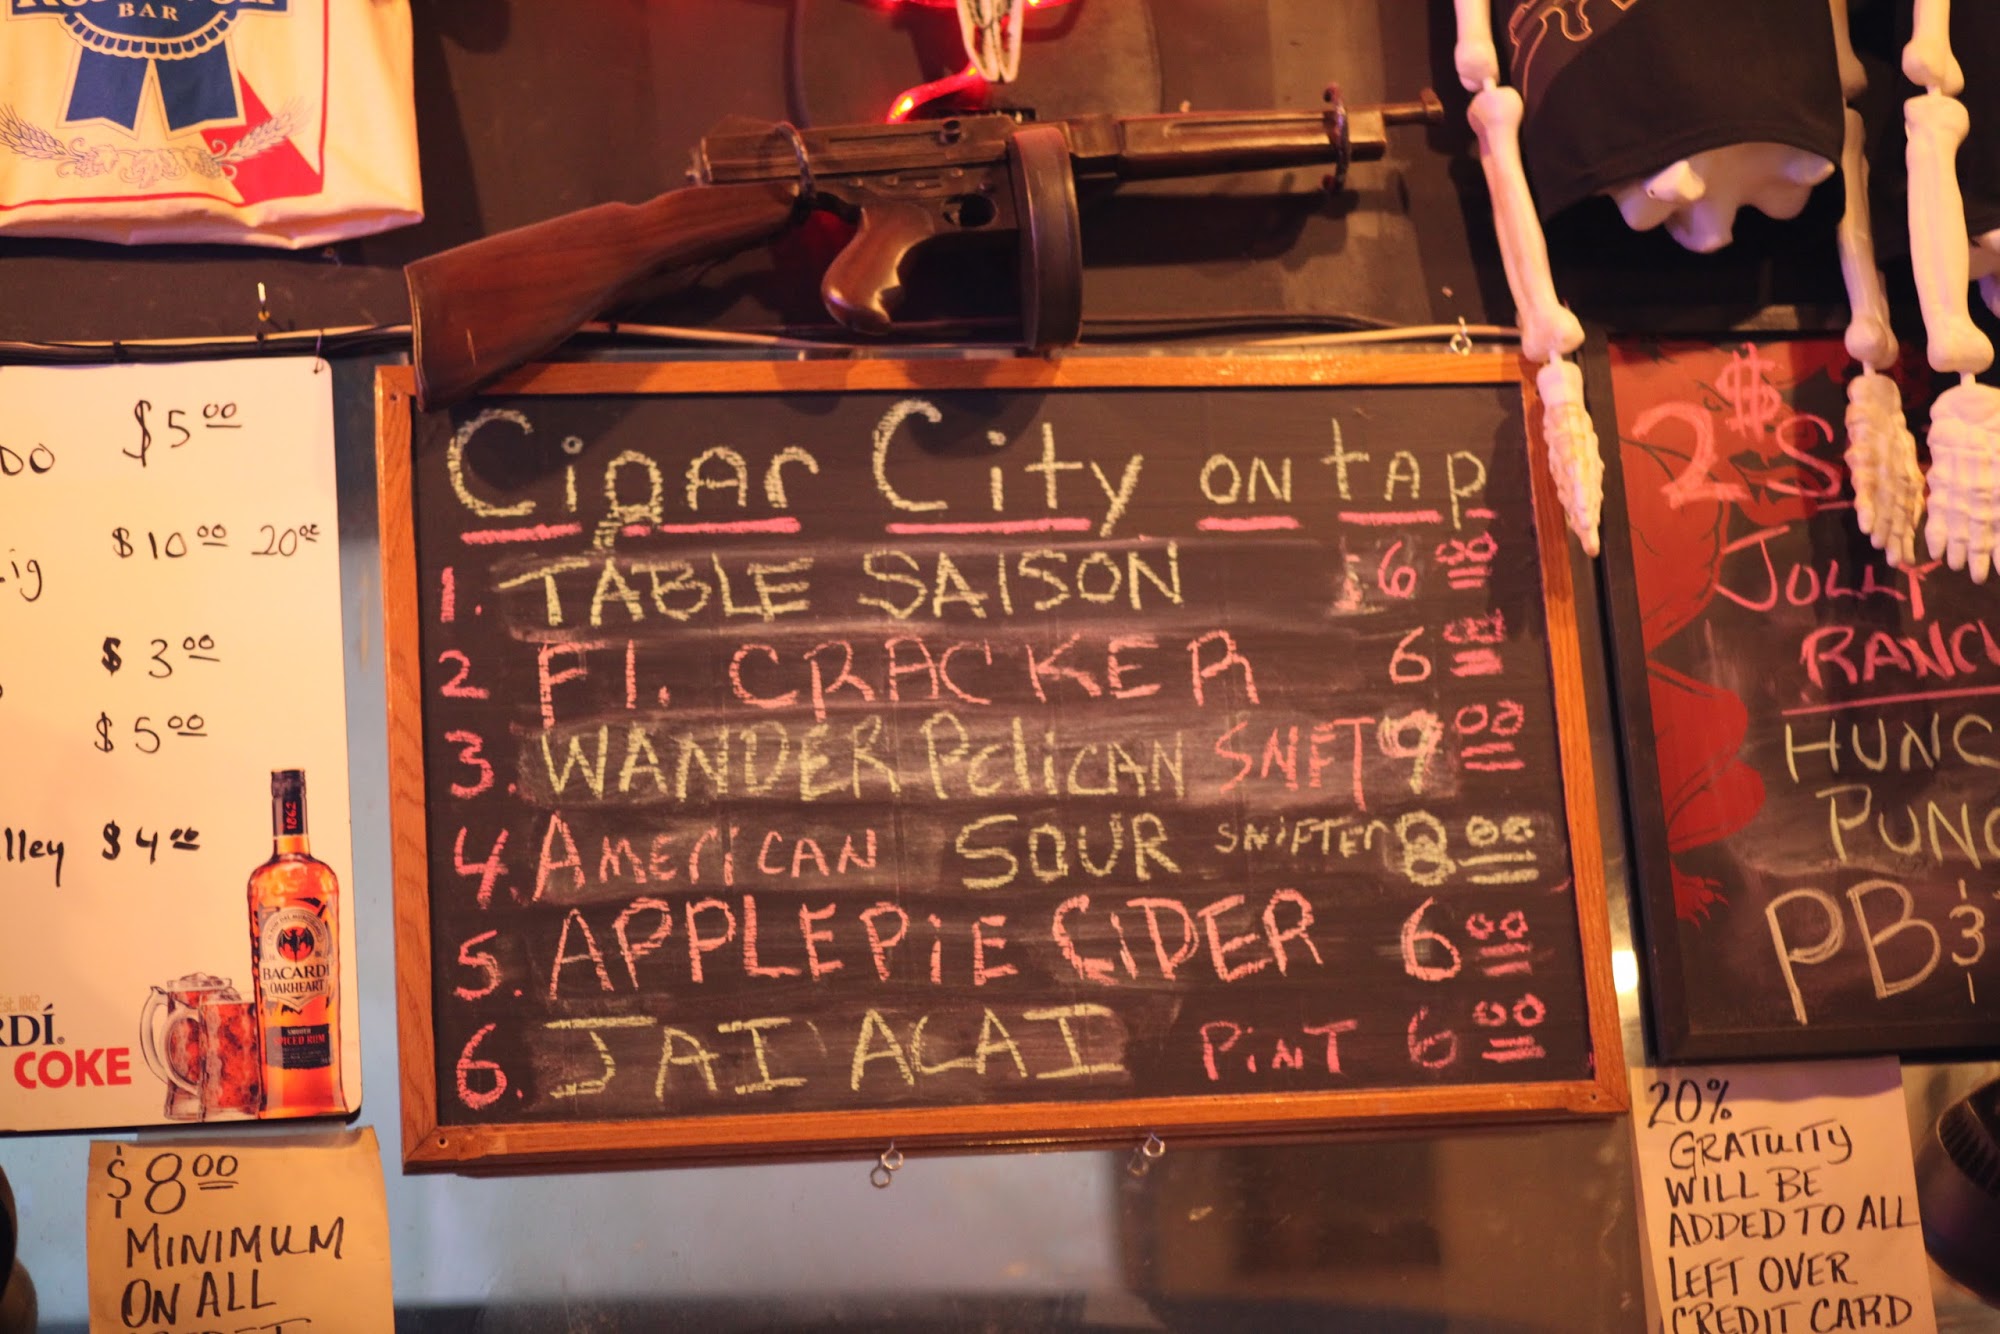 BAR
$5.00
DO
$10.00 20.00
ig
$3.00
$5.00
lley $4.00
1862
BACARDI
OAKHEART
SMOOTH
SPICED RUM
Est. 1862
RDÍ®
COKE
$8.00
MINIMUM
ON ALL
Cigar City ON tAp
1. TABLE SAISON 6.00
2 Fl. CRACKER 6.00
3. WANDER PeliCAN SNFT 9.00
4. AMeriCAN SOUR SNiFTEr 8.00
5. APPLE PiE CiDER 6.00
6. JAI ACAI PiNT 6.00
2$ S
JOLLY
RANC
HUNC
PUNC
PB &
20%
GRATUITY
WILL BE
ADDED TO ALL
LEFT OVER
CREDIT CARD